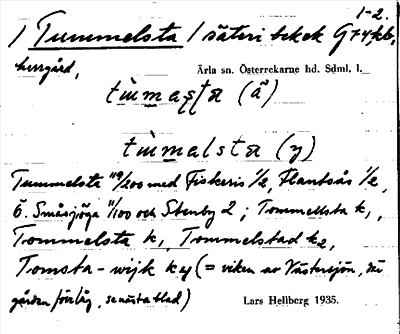 1-2.
/ Tummelsta / säteri bebek G74 k6,
herrgård, Ärla sn. Österrekarne hd. Sdml. l.
(ä)
(y)
Tummelsta 119/200 med Fiskeris 1/2, Flantsås 1/2,
Ö. Småsjöga 11/100 och Stenby 2; Tommellsta k,,
Tommelsta k, Tommelstad k2,
Tomsta-wijk k4 (= viken av Västersjön, där
gården förlåg, se nästa blad) Lars Hellberg 1935.